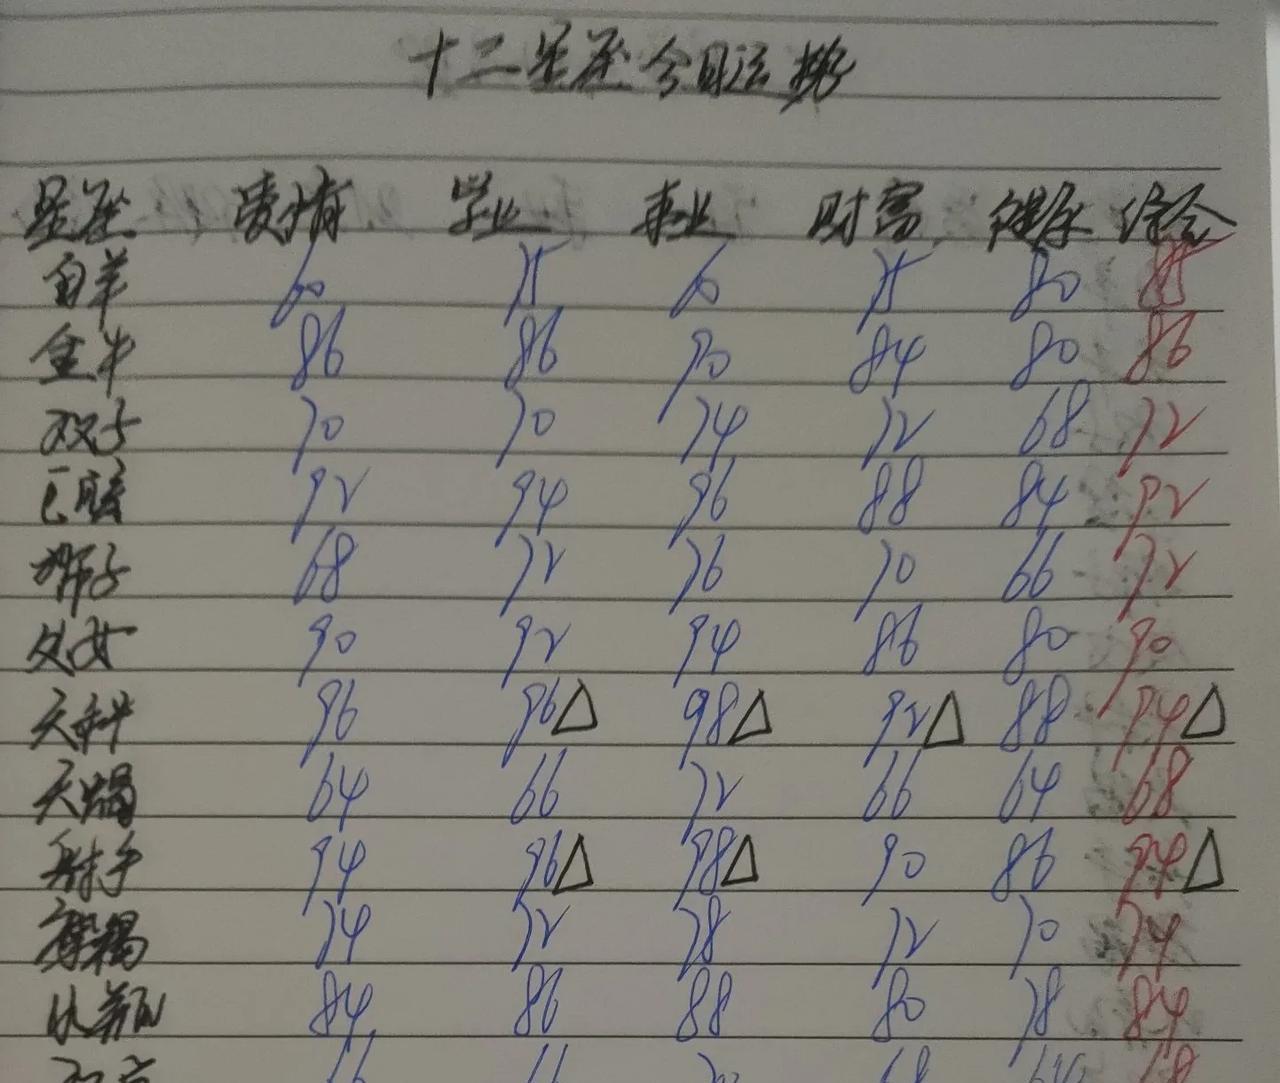 十二星座今日运势
星座 爱情 学业 事业 财富 健康 综合
白羊 60 75 80
金牛 86 86 90 84 80 86
双子 70 70 74 72 68 72
巨蟹 92 94 96 88 84 92
狮子 68 72 76 70 66 72
处女 90 92 94 86 80 90
天秤 96 96△ 98△ 92△ 88 94△
天蝎 64 66 72 66 64 68
射手 94 96△ 98△ 90 86 94△
摩羯 74 72 78 72 70 74
水瓶 84 86 88 80 78 84